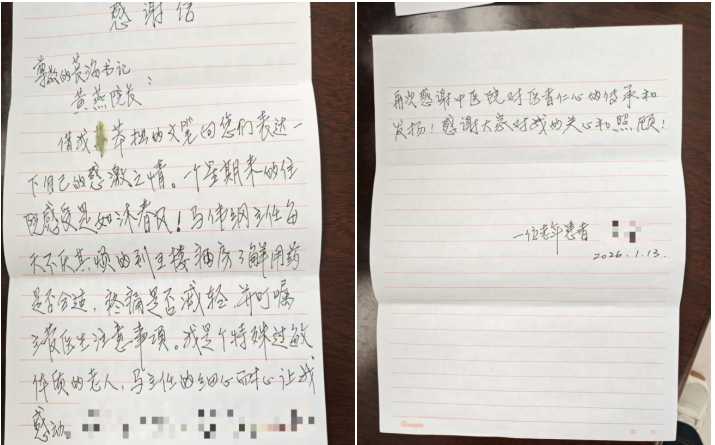 感谢信
尊敬的莀海书记
黄燕院长：
借我笨拙的文笔向您们表达一
下自己的感激之情。一个星期来的住
院感受是如沐春风！马伟钢主任每
天不厌其烦的到五楼病房了解用药
是否合适，疼痛是否减轻，并叮嘱
主管医生注意事项。我是个特殊过敏
体质的老人，马主任的细心耐心让我
感动。
再次感谢中医院对医者仁心的传承和
发扬！感谢大家对我的关心和照顾！
一位老年患者
2026.1.13.